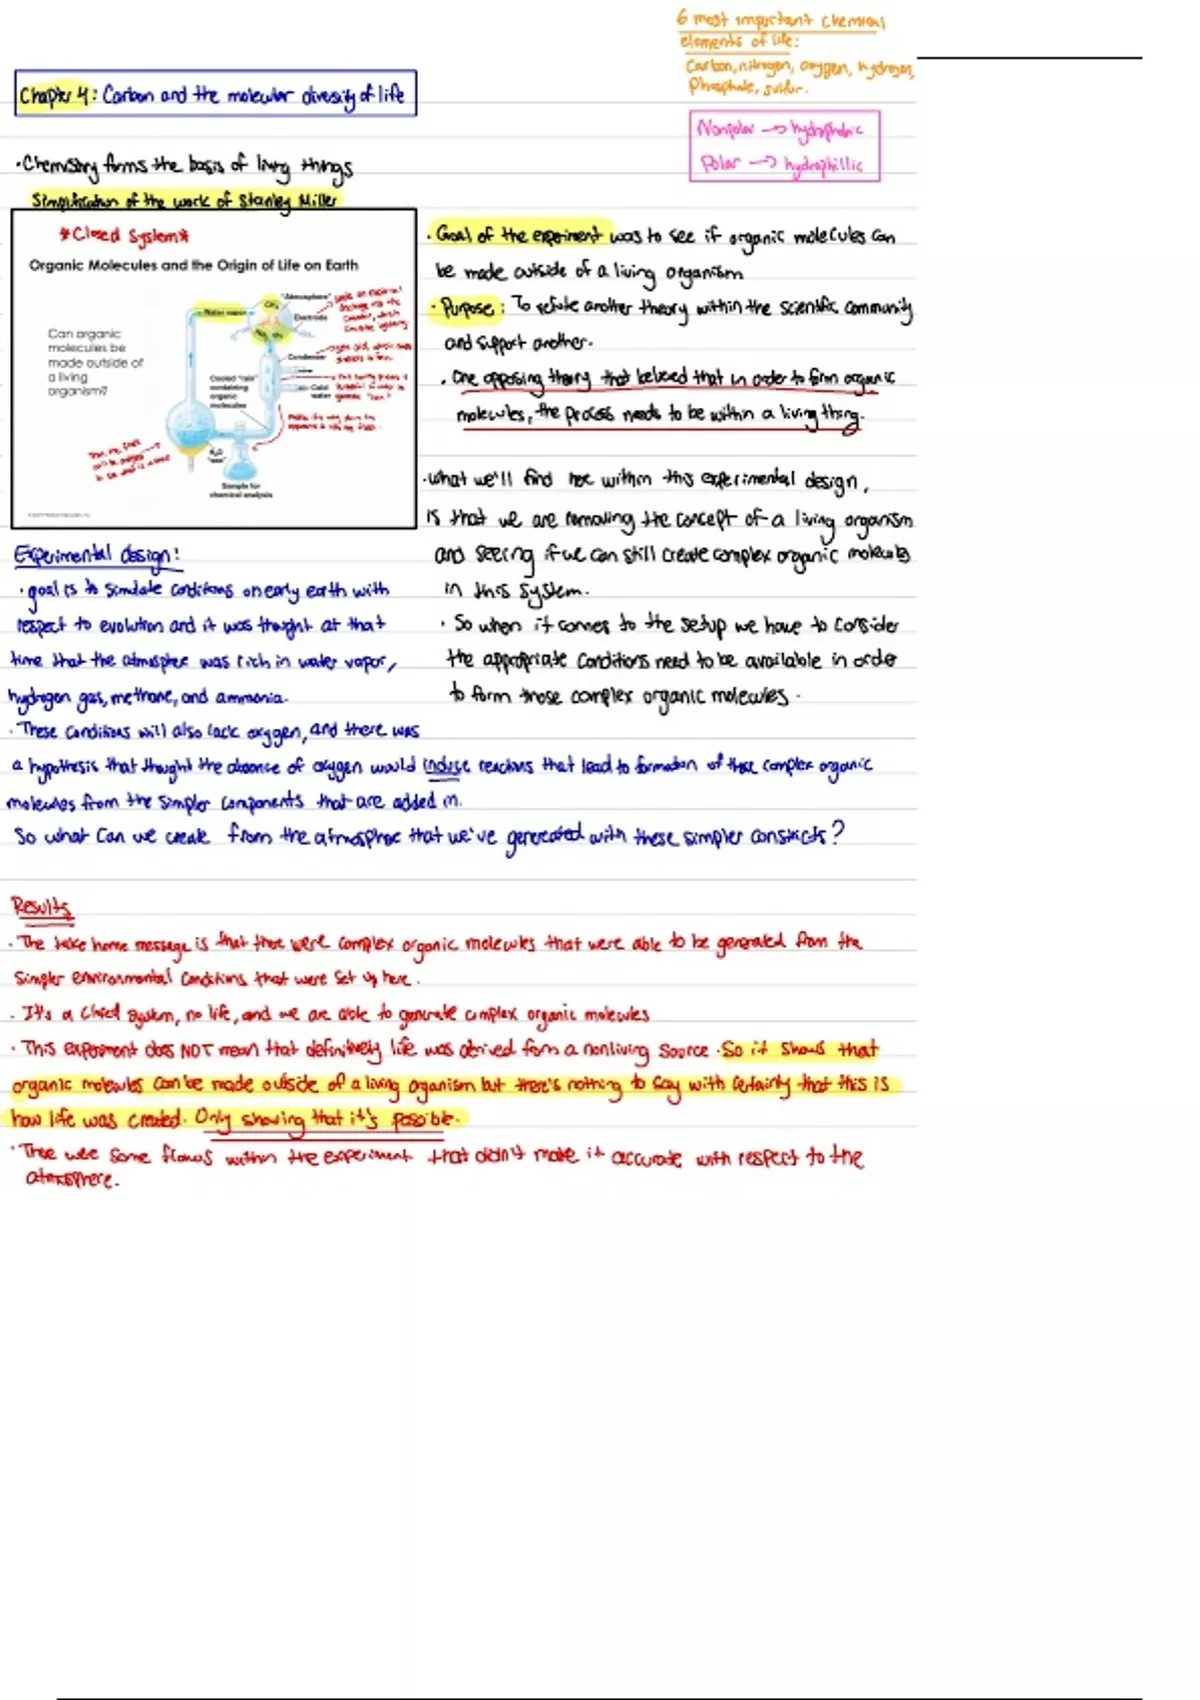 6 most important chemical
elements of life:
Carbon, nitrogen, oxygen, hydrogen,
Phosphate, sulfur.
Chapter 4: Carbon and the molecular diversity of life
Nonpolar → hydrophobic
Polar → hydrophillic
·Chemistry forms the basis of living things
Simplification of the work of Stanley Miller
*Closed System*
Organic Molecules and the Origin of Life on Earth
Can organic
molecules be
made outside of
a living
organism?
Water vapor
CH₄
"Atmosphere"
Electrode
Condenser
Cooled "rain"
containing
organic
molecules
Cold
water
H₂O
"sea"
Sample for
chemical analysis
· Goal of the experiment was to see if organic molecules can
be made outside of a living organism
· Purpose: To refute another theory within the scientific community
and support another.
· One opposing theory that believed that in order to form organic
molecules, the process needs to be within a living thing.
·what we'll find here within this experimental design,
is that we are removing the concept of a living organism
and seeing if we can still create complex organic molecules
in this system.
· So when it comes to the setup we have to consider
the appropriate conditions need to be available in order
to form those complex organic molecules.
Experimental design:
· goal is to simulate conditions on early earth with
respect to evolution and it was thought at that
time that the atmosphere was rich in water vapor,
hydrogen gas, methane, and ammonia.
· These conditions will also lack oxygen, and there was
a hypothesis that thought the absence of oxygen would induce reactions that lead to formation of these complex organic
molecules from the simpler components that are added in.
So what can we create from the atmosphere that we've generated with these simpler constructs?
Results
· The take home message is that there were complex organic molecules that were able to be generated from the
simpler environmental conditions that were set up here.
· It's a closed system, no life, and we are able to generate complex organic molecules
· This experiment does NOT mean that definitively life was derived from a nonliving source. So it shows that
organic molecules can be made outside of a living organism but there's nothing to say with certainty that this is
how life was created. Only showing that it's possible.
· There were some flaws within the experiment that didn't make it accurate with respect to the
atmosphere.